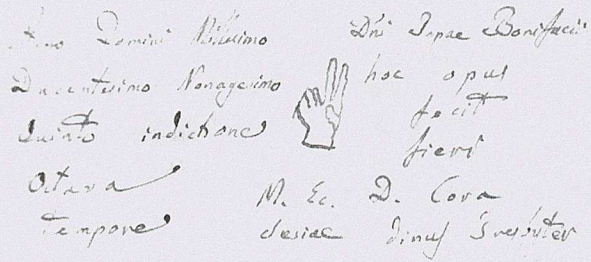 Anno Domini Millesimo
Ducentesimo Nonagesimo
Quinto indictione
Octava
Tempore
Dñi Papae Bonifacii
hoc opus
fecit
fieri
M. Ec. D. Cora
clesiae dinus Presbuter